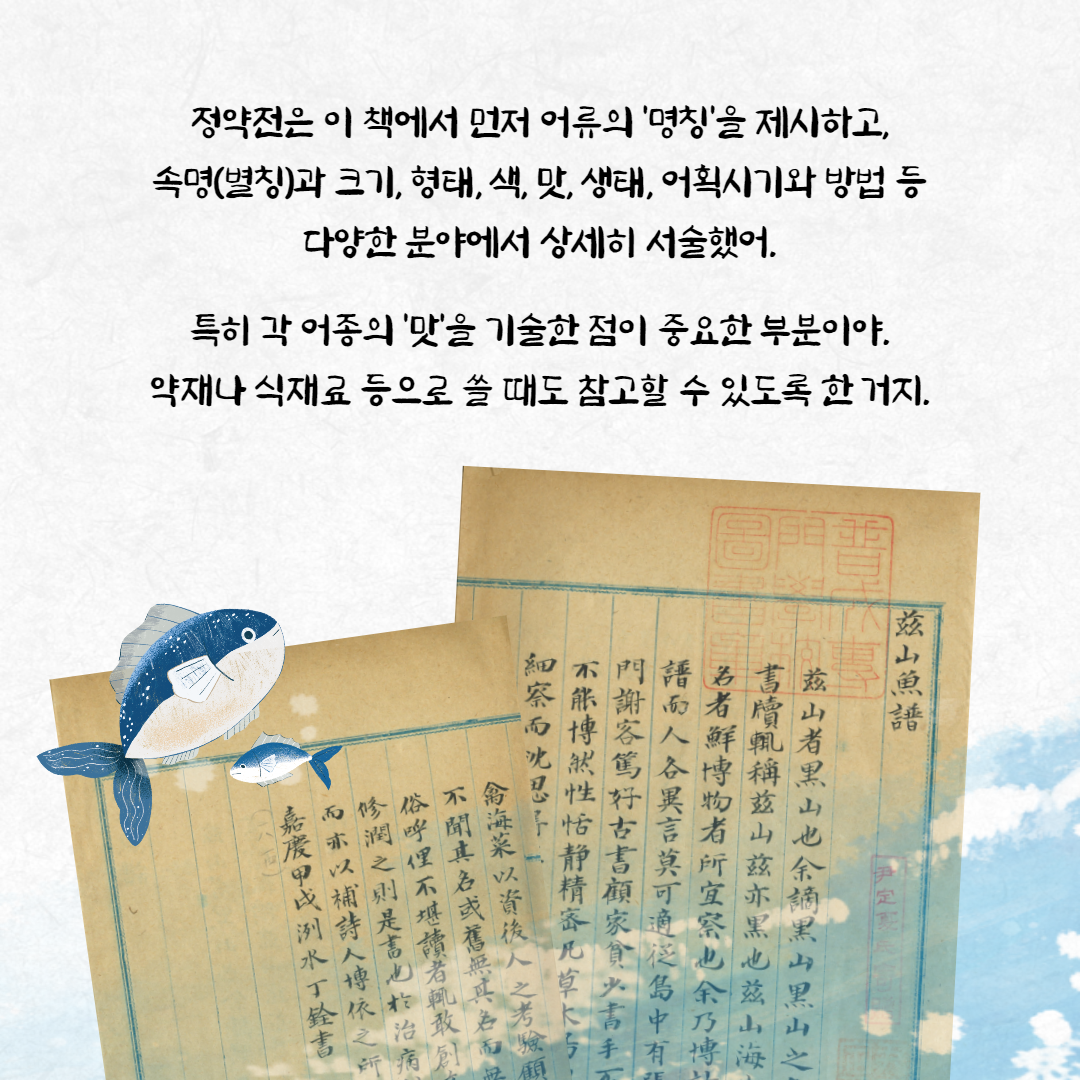 정약전은 이 책에서 먼저 어류의 '명칭'을 제시하고,
속명(별칭)과 크기, 형태, 색, 맛, 생태, 어획시기와 방법 등
다양한 분야에서 상세히 서술했어.
특히 각 어종의 '맛'을 기술한 점이 중요한 부분이야.
약재나 식재료 등으로 쓸 때도 참고할 수 있도록 한 거지.
玆山魚譜
玆山者黑山也余謫黑山黑山之
書牘輒稱玆山玆亦黑也玆山海
名者鮮博物者所宜察也余乃博
譜而人各異言莫可適從島中有張
門謝客篤好古書顧家貧少書手不
不能博然性恬靜精密凡草木
細察而沈思
禽海菜以資後人之考驗顧
不聞其名或舊無其名而無
俗呼俚不堪讀者輒敢創
修潤之則是書也於治病
而亦以補詩人博依之所
嘉慶甲戌洌水丁銓書